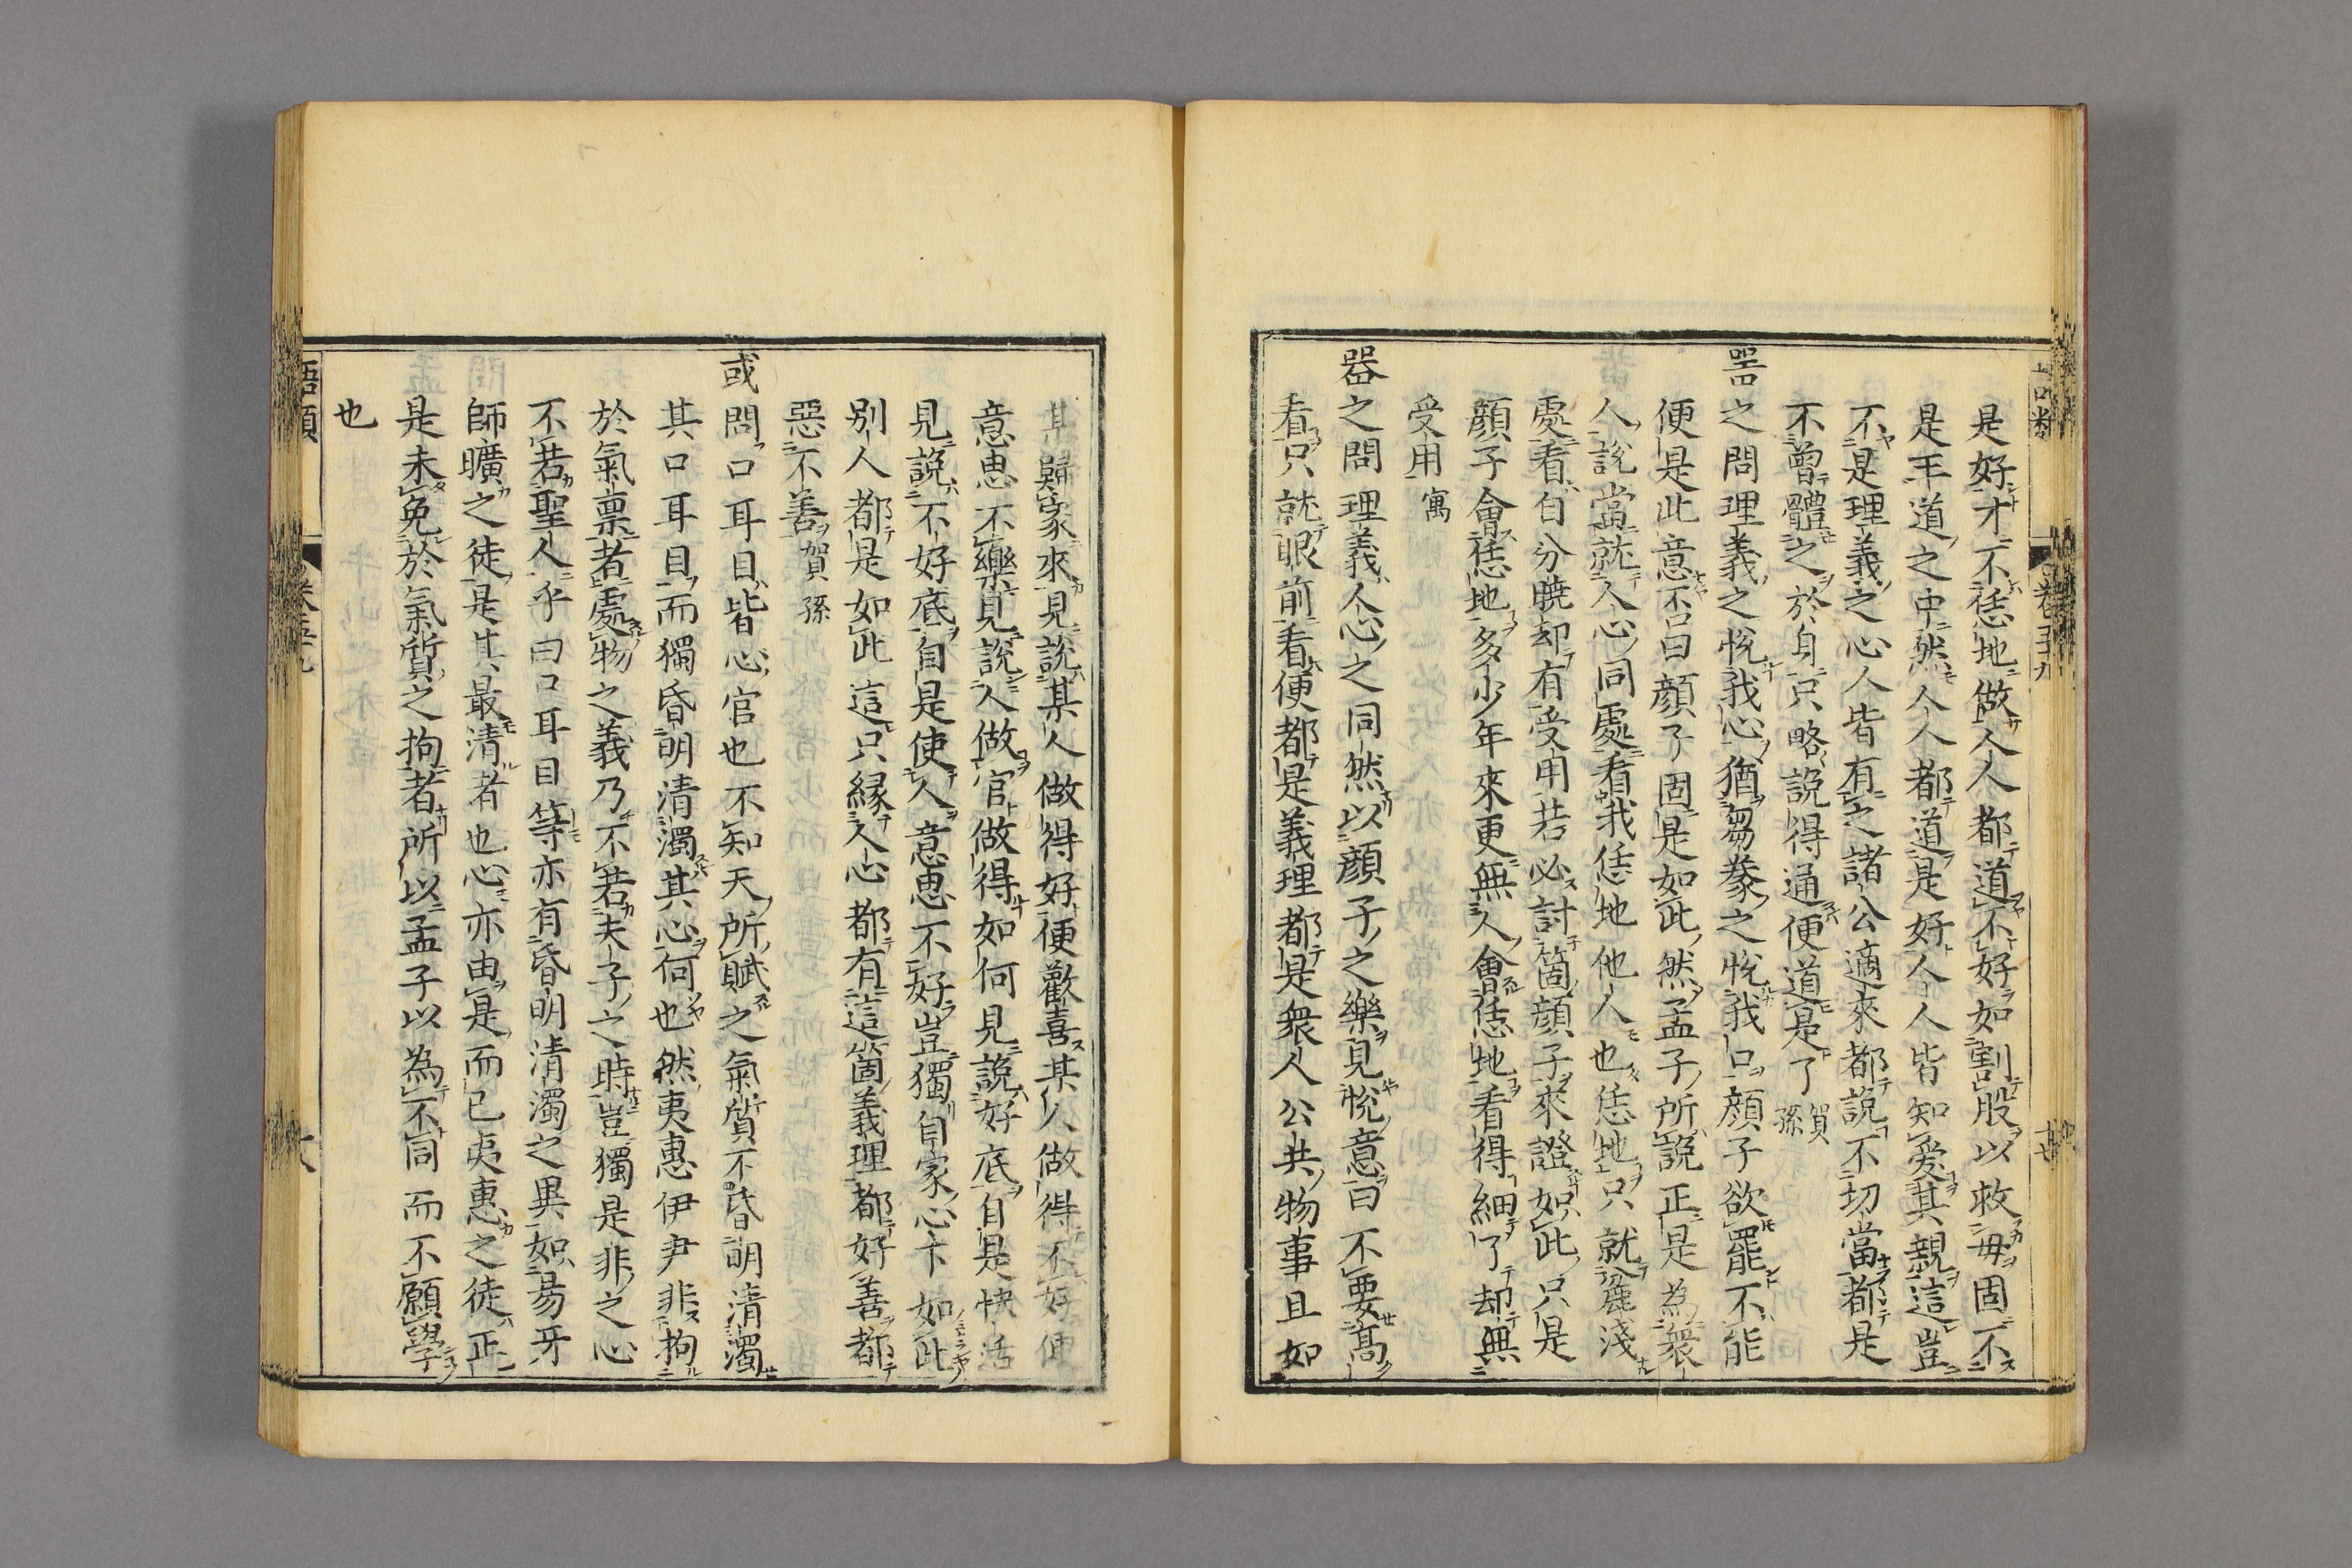 卷五十九
是好才不恁地做人人都道不好如割股以救母固不
是王道之中然人人都道是好人人皆知愛其親這豈
不是理義之心人皆有之諸公適來都說不切當都是
不曾體之於身只略說得通便道是了賀孫
器之問理義之悅我心猶芻豢之悅我口顏子欲罷不能
便是此意否曰顏子固是如此然孟子所說正是為衆
人說當就人心同處看我恁地他人也恁地只就麤淺
處看自分曉却有受用若必討箇顏子來證如此只是
顏子會恁地多少年來更無人會恁地看得細了却無
受用寓
器之問理義人心之同然以顏子之樂見悅意曰不要高
看只就眼前看便都是義理都是衆人公共物事且如
某歸家來見說某人做得好便歡喜某人做得不好便
意思不樂見說人做官做得如何見說好底自是快活
見說不好底自是使人意思不好豈獨自家心下如此
别人都是如此這只緣人心都有這箇義理都好善都
惡不善賀孫
或問口耳目皆心官也不知天所賦之氣質不昏明清濁
其口耳目而獨昏明清濁其心何也然夷惠伊尹非拘
於氣禀者處物之義乃不若夫子之時豈獨是非之心
不若聖人乎曰口耳目等亦有昏明清濁之異如易牙
師曠之徒是其最清者也心亦由是而已夷惠之徒正
是未免於氣質之拘者所以孟子以為不同而不願學
也
語類